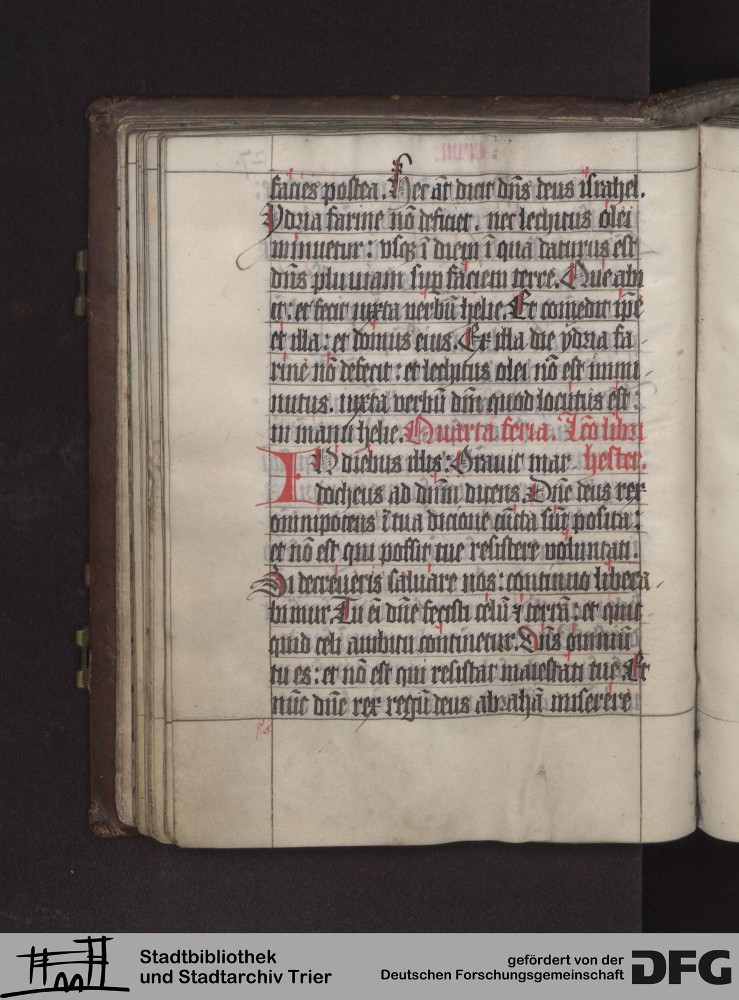 facies postea. Hec at̄ dicit dn̄s deus israhel.
Ydria farine nō deficiet. nec lechitus olei
minuetur: vsqꝫ ī diem ī qua daturus est
dn̄s pluuiam suꝑ faciem terre. Que abi
it: et fecit iuxta uerbū helie. Et comedit ip̄e
et illa: et domus eius. Ex illa die ydria fa
rine nō defecit: et lechitus olei nō est immi
nutus. iuxta verbū dn̄i quod locutus est:
in manu helie. Quarta feria. Lc̄o libri
IN diebus illis: Orauit mar hester.
docheus ad dn̄m dicens. Dn̄e deus rex
omnipotens ī tua dicione cūcta sūt posita:
et nō est qui possit tue resistere voluntati.
Si decreueris saluare nos: continuo libera
bimur. Tu ei̅ dn̄e fecisti celū ⁊ terrā: et quic
quid celi ambitu continetur. Dn̄s omniū
tu es: et nō est qui resistat maiestati tue. Et
nūc dn̄e rex regū deus abrahā miserere
Stadtbibliothek
und Stadtarchiv Trier
gefördert von der
Deutschen Forschungsgemeinschaft
DFG